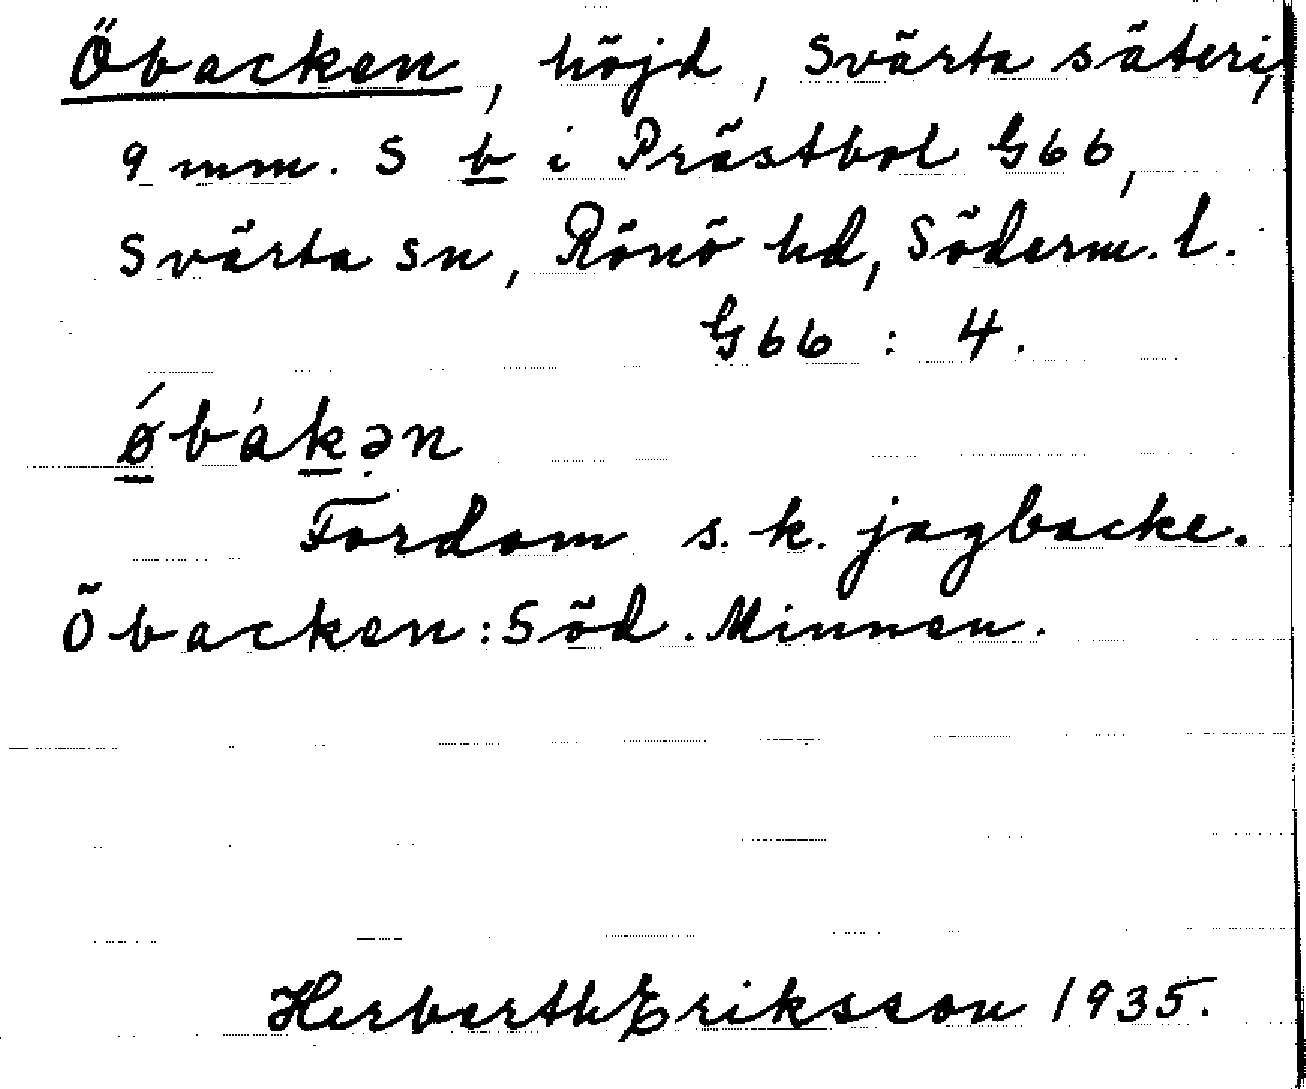 Öbacken, höjd, Svärta säteri,
9 mm. S b i Prästbol G66,
Svärta sn, Rönö hd, Söderm. l.
G66 : 4.
ǿbàkən
Fordom s. k. jagbacke.
Öbacken: Söd. Minnen.
Herberth Eriksson 1935.